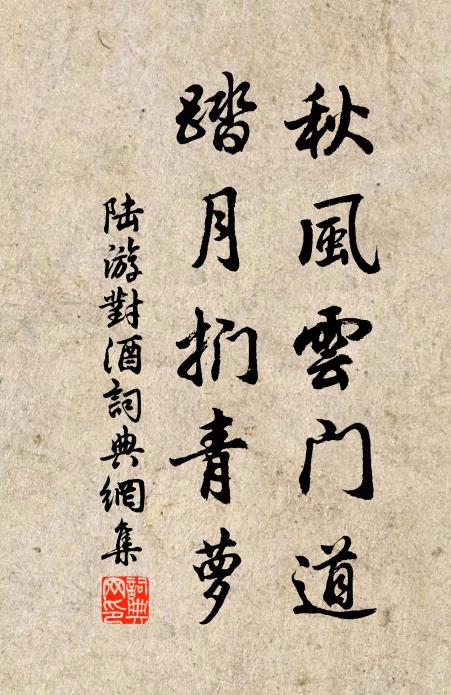 秋風雲门道
踏月扪青萝
陆游對酒詞典網集
詞典网印